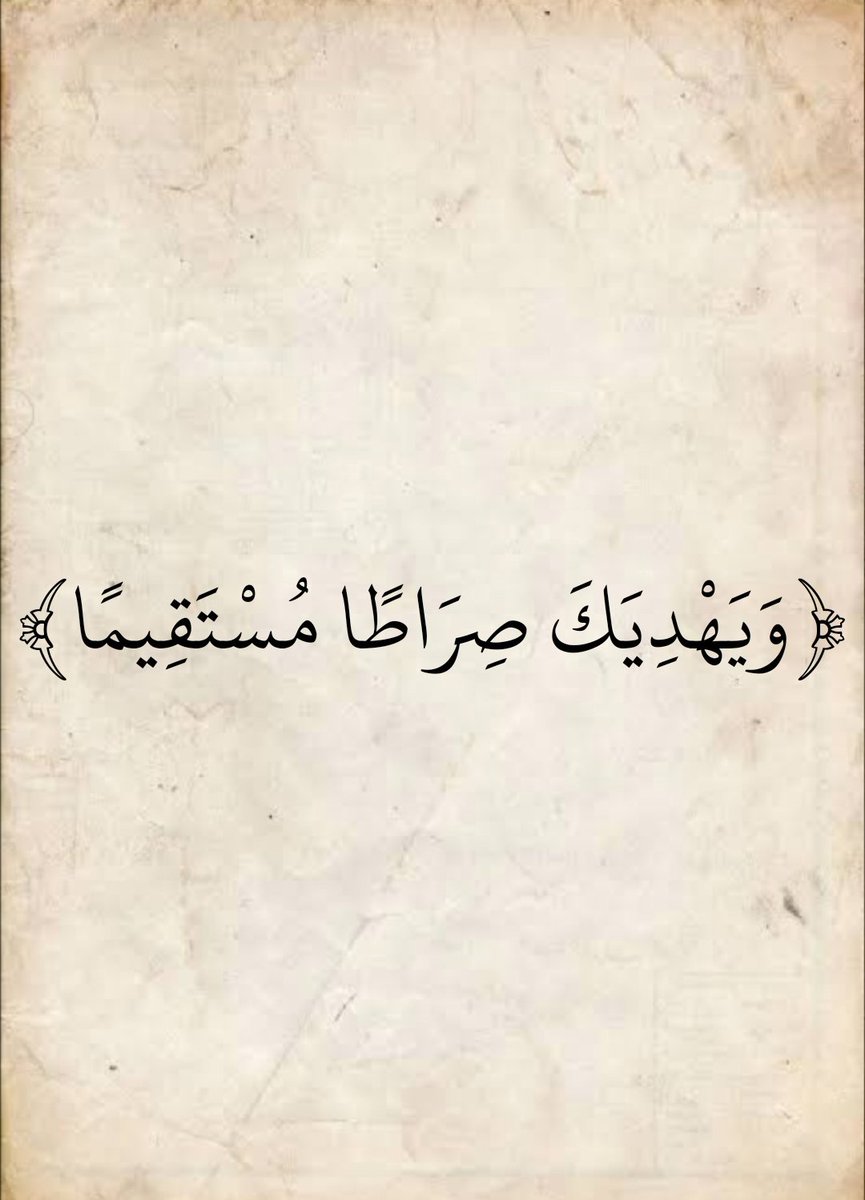 ﴿وَيَهْدِيَكَ صِرَاطًا مُسْتَقِيمًا﴾